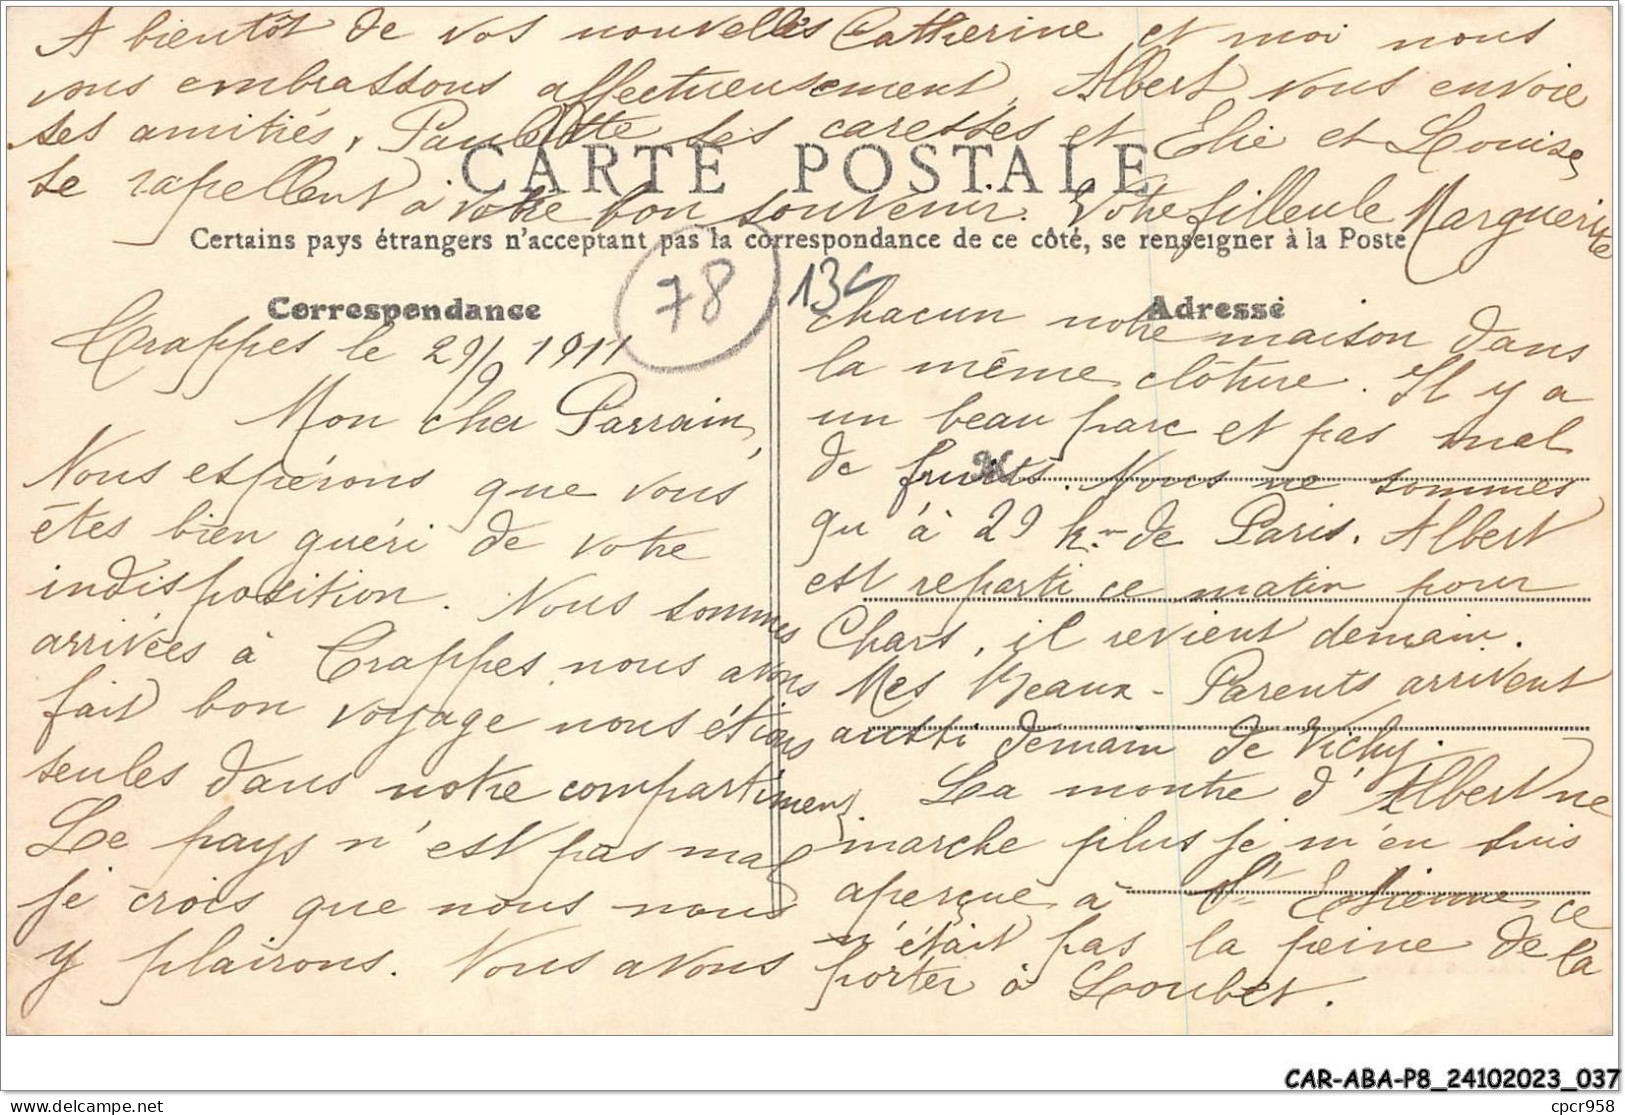 A bientôt de vos nouvelles Catherine et moi nous
vous embrassons affectueusement, Albert vous envoie
ses amitiés, Paulette ses caresses et Elie et Louise
CARTE POSTALE
se rapellent à votre bon souvenir. Votre filleule Marguerite
Certains pays étrangers n'acceptant pas la correspondance de ce côté, se renseigner à la Poste
78
13c
Correspondance
Trappes le 29/9 1911
Mon cher Parrain,
Nous espérons que vous
êtes bien guéri de votre
indisposition. Nous sommes
arrivées à Trappes nous avons
fait bon voyage nous étions
seules dans notre compartiment
Le pays n'est pas mal
je crois que nous nous
y plairons. Nous avons
Adresse
chacun notre maison dans
la même clôture. Il y a
un beau parc et pas mal
M
de fruits. Nous ne sommes
qu'à 29 km de Paris. Albert
est reparti ce matin pour
Chars, il revient demain.
Mes Beaux-Parents arrivent
aussi demain de Vichy.
La montre d'Albert ne
marche plus je m'en suis
aperçue à St Etienne ce
n'était pas la peine de la
porter à Loubet.
CAR-ABA-P8_24102023_037
delcampe.net
cpcr958